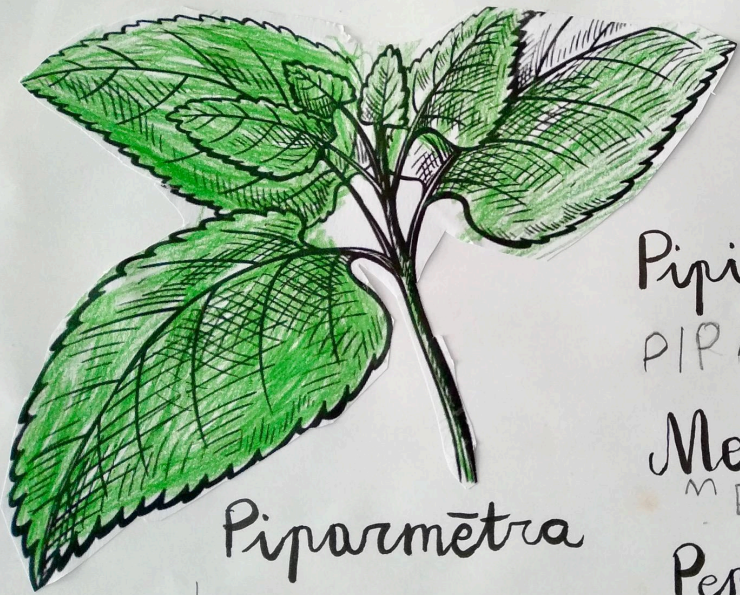 Piparmētra
Pipi
PIP
Me
M
Pep